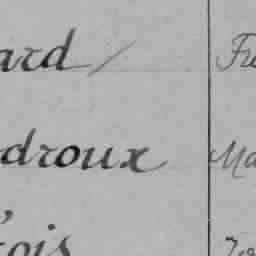 ard /
droux
ois
Fr
Ma